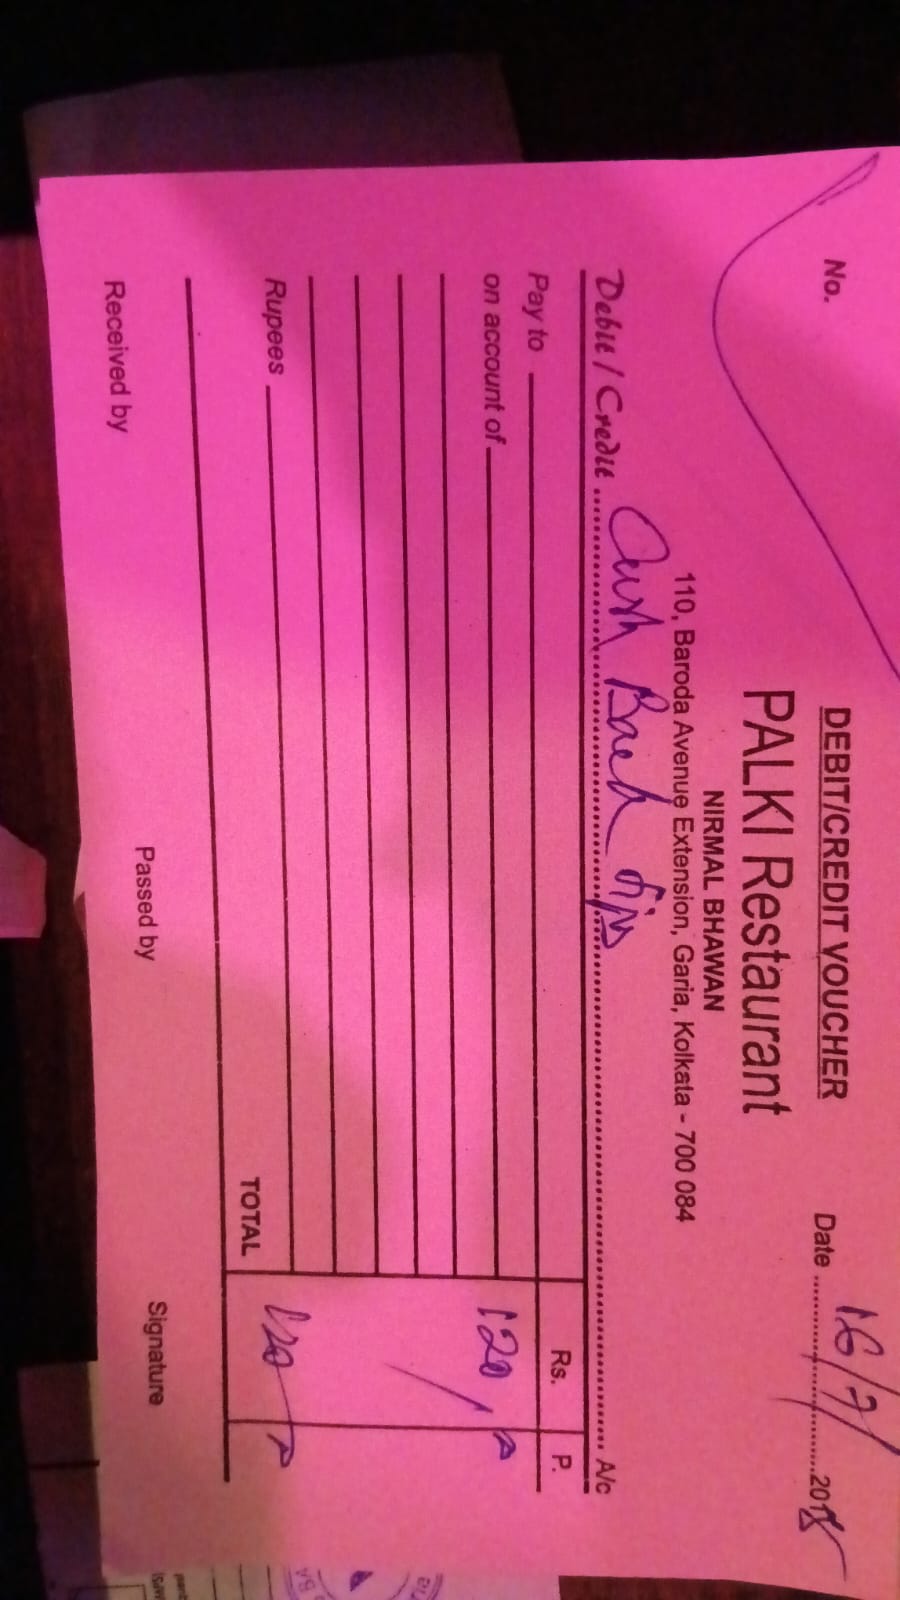 DEBIT/CREDIT VOUCHER
No.
PALKI Restaurant
Date 16/7/ 2018
NIRMAL BHAWAN
110, Baroda Avenue Extension, Garia, Kolkata - 700 084
Debit / Credit Cash Back A/c
Rs. P.
Pay to
on account of 120
Rupees
TOTAL 120
Received by Passed by Signature